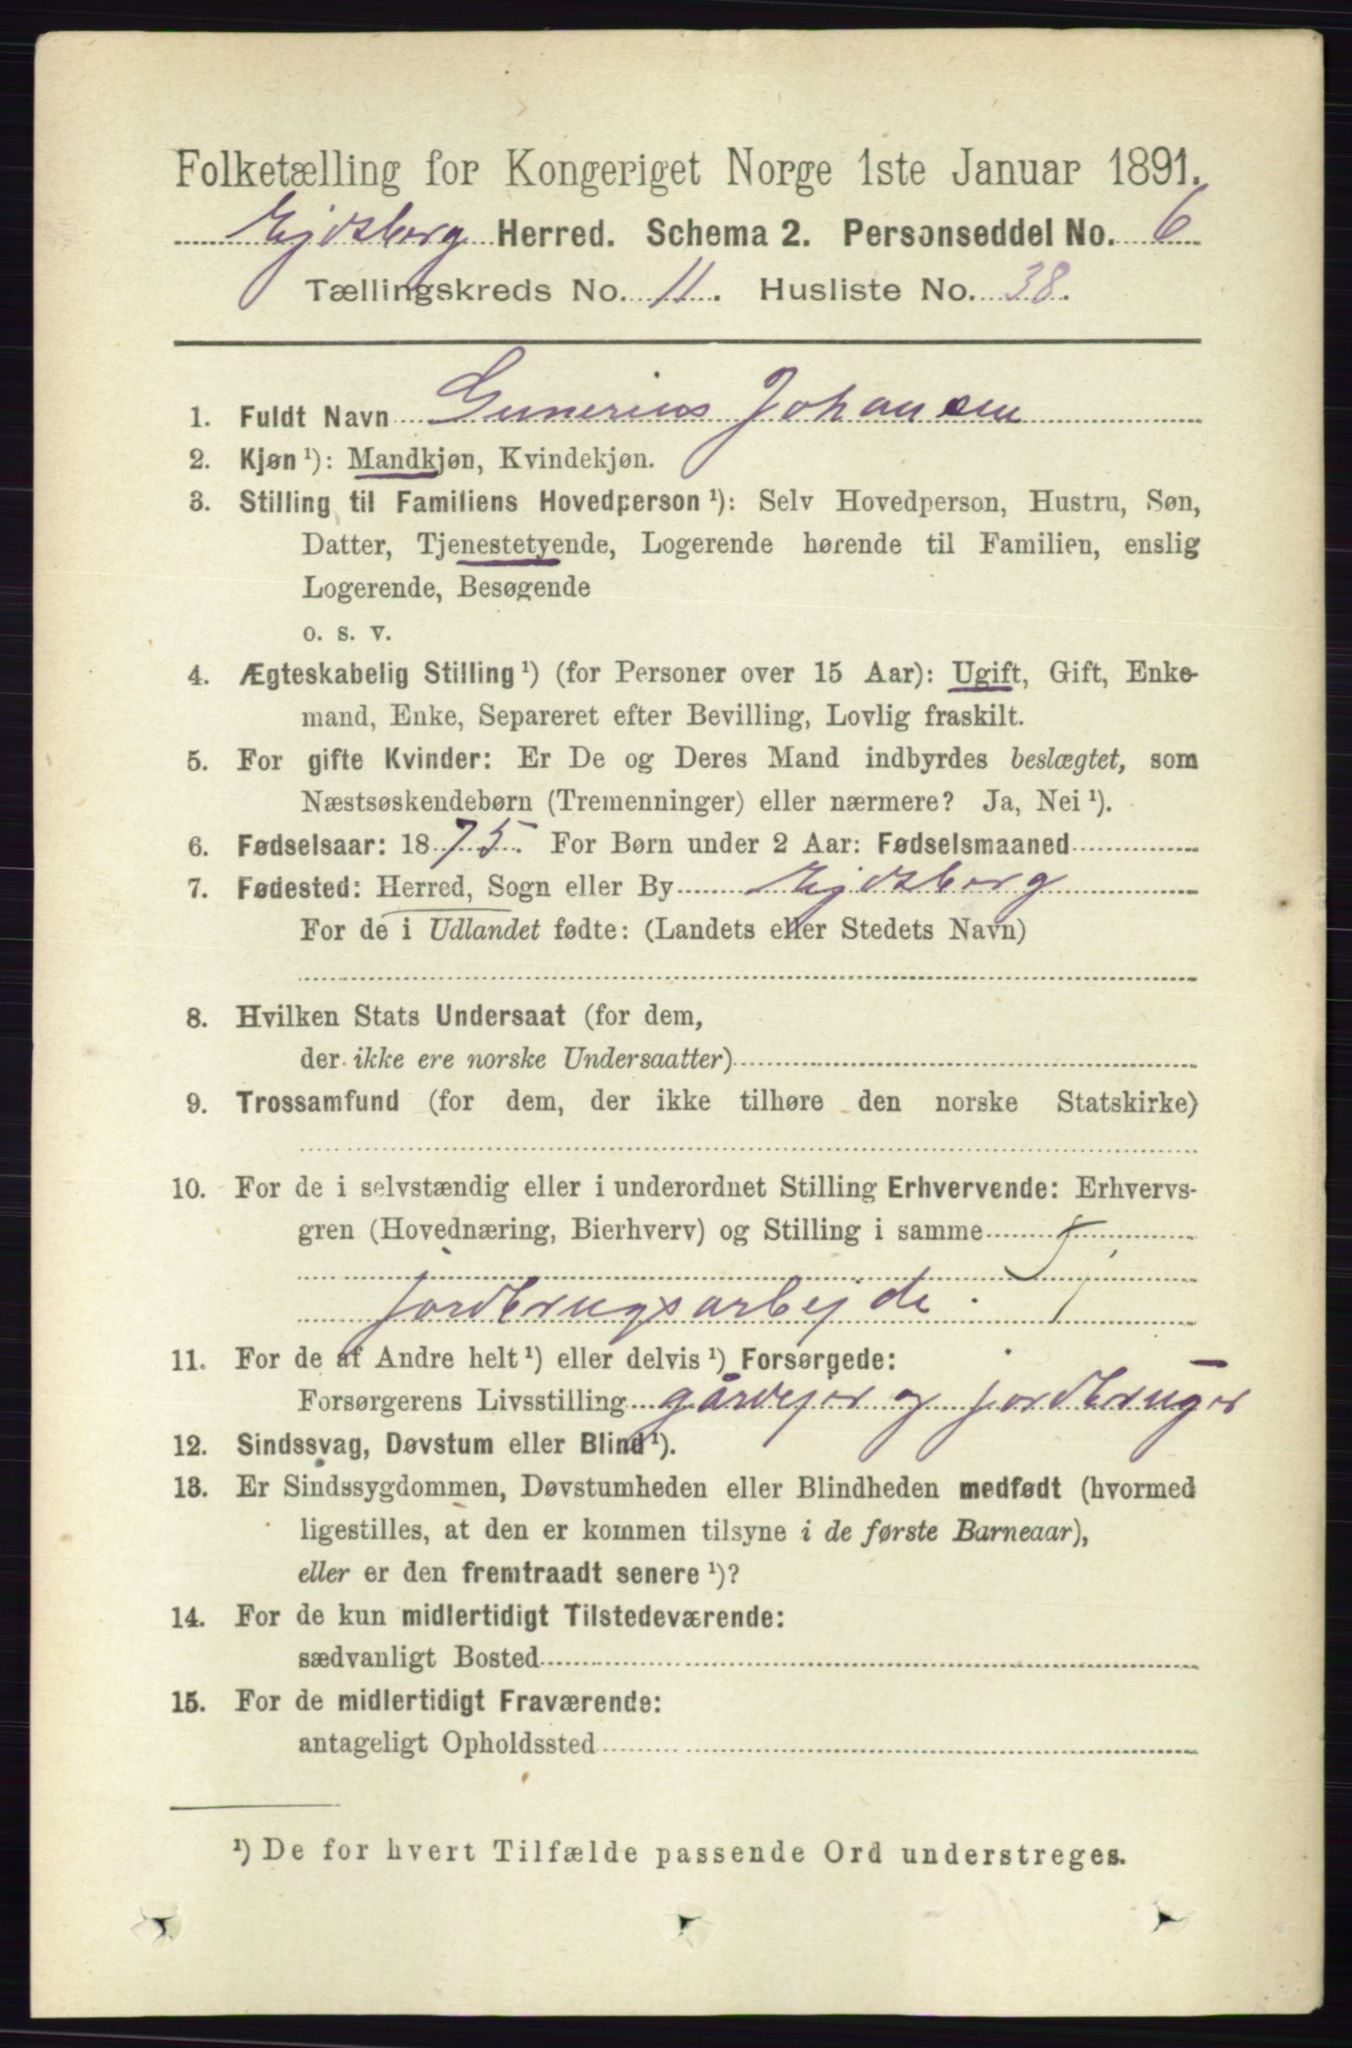 Folketælling for Kongeriget Norge 1ste Januar 1891.
Ejdsberg Herred. Schema 2. Personseddel No. 6
Tællingskreds No. 11. Husliste No. 38.
1. Fuldt Navn Gunerius Johansen
2. Kjøn ¹): Mandkjøn, Kvindekjøn.
3. Stilling til Familiens Hovedperson ¹): Selv Hovedperson, Hustru, Søn,
Datter, Tjenestetyende, Logerende hørende til Familien, enslig
Logerende, Besøgende
o. s. v.
4. Ægteskabelig Stilling ¹) (for Personer over 15 Aar): Ugift, Gift, Enke-
mand, Enke, Separeret efter Bevilling, Lovlig fraskilt.
5. For gifte Kvinder: Er De og Deres Mand indbyrdes beslægtet, som
Næstsøskendebørn (Tremenninger) eller nærmere? Ja, Nei ¹).
6. Fødselsaar: 1875. For Børn under 2 Aar: Fødselsmaaned
7. Fødested: Herred, Sogn eller By Ejdsberg
For de i Udlandet fødte: (Landets eller Stedets Navn)
8. Hvilken Stats Undersaat (for dem,
der ikke ere norske Undersaatter)
9. Trossamfund (for dem, der ikke tilhøre den norske Statskirke)
10. For de i selvstændig eller i underordnet Stilling Erhvervende: Erhvervs-
gren (Hovednæring, Bierhverv) og Stilling i samme
jordbrugsarbejde.
11. For de af Andre helt ¹) eller delvis ¹) Forsørgede:
Forsørgerens Livsstilling gårdejer og jordbruger
12. Sindssvag, Døvstum eller Blind ¹).
13. Er Sindssygdommen, Døvstumheden eller Blindheden medfødt (hvormed
ligestilles, at den er kommen tilsyne i de første Barneaar),
eller er den fremtraadt senere ¹)?
14. For de kun midlertidigt Tilstedeværende:
sædvanligt Bosted
15. For de midlertidigt Fraværende:
antageligt Opholdssted
¹) De for hvert Tilfælde passende Ord understreges.